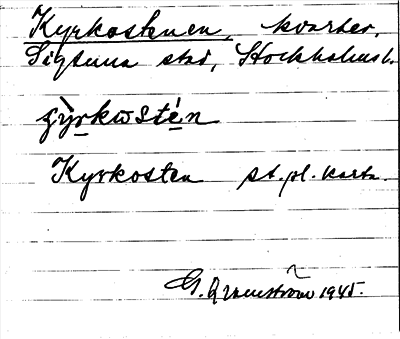 Kyrkostenen, kvarter,
Sigtuna stad, Stockholms l.
Kyrkosten st. pl. karta.
G. 1945.